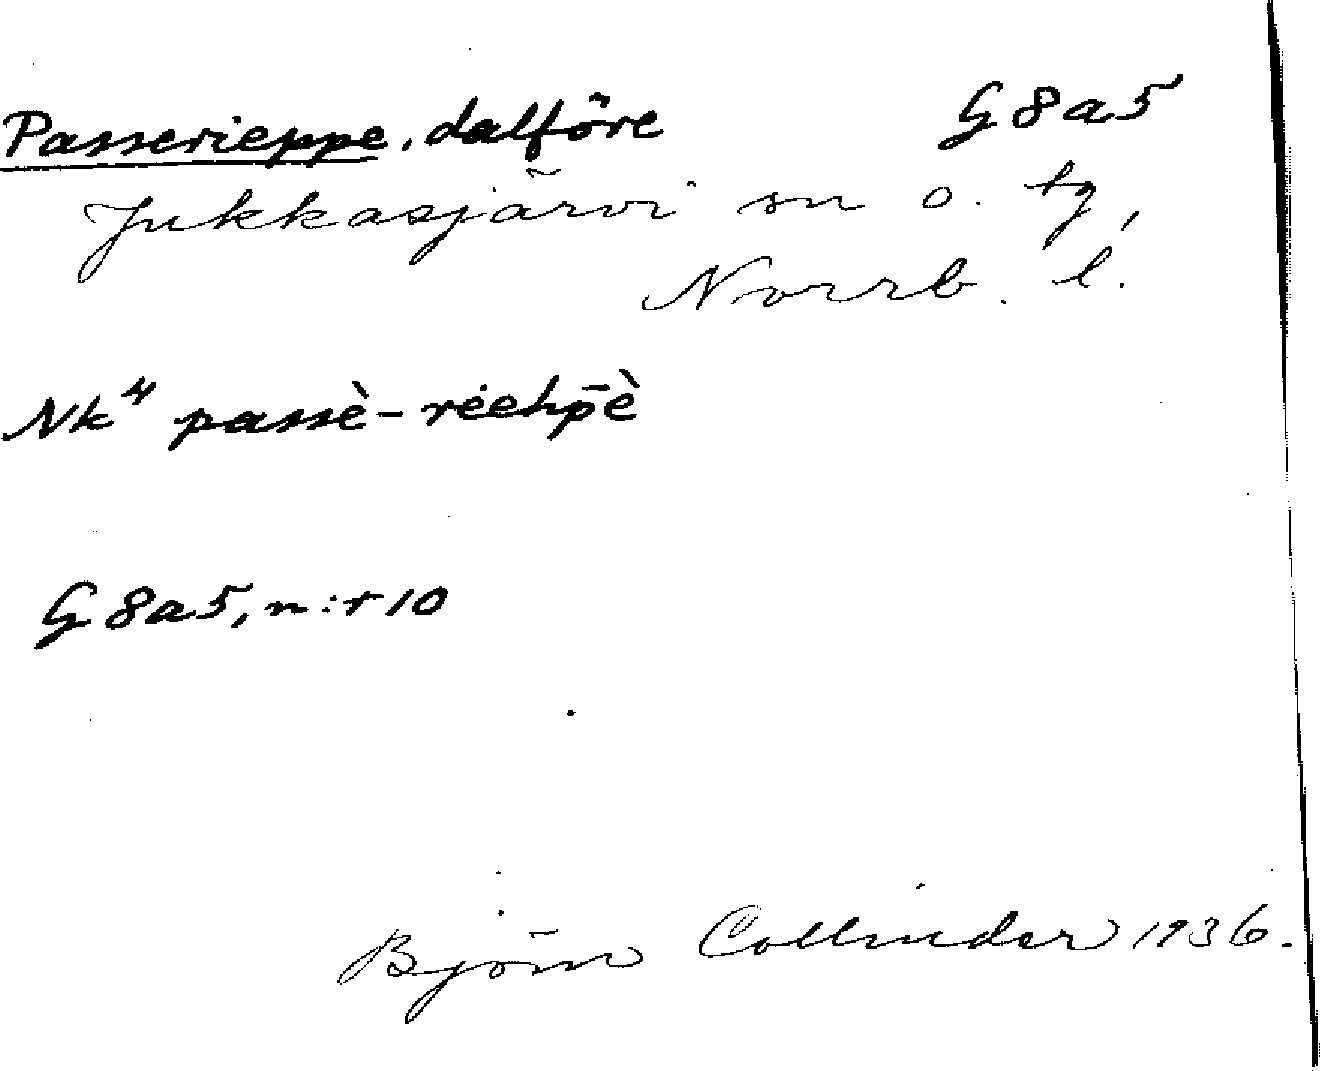 Passerieppe, dalföre G8a5
Jukkasjärvi sn o. tg,
Norrb. l.
Nk⁴ passè-rėehp̄è
G8a5, n:r 10
Björn Collinder 1936.